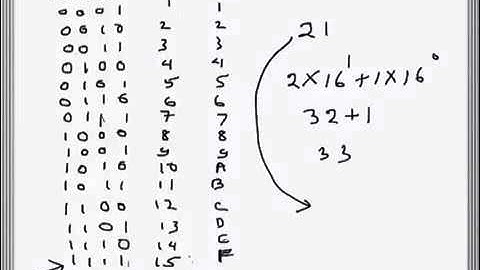 0 0 0 1 1 1
0 0 1 0 2 2
0 0 1 1 3 3
0 1 0 0 4 4
0 1 0 1 5 5
0 1 1 0 6 6
0 1 1 1 7 7
1 0 0 0 8 8
1 0 0 1 9 9
1 0 1 0 10 A
1 0 1 1 11 B
1 1 0 0 12 C
1 1 0 1 13 D
1 1 1 0 14 E
1 1 1 1 15 F
21
2×16¹+1×16⁰
32+1
33